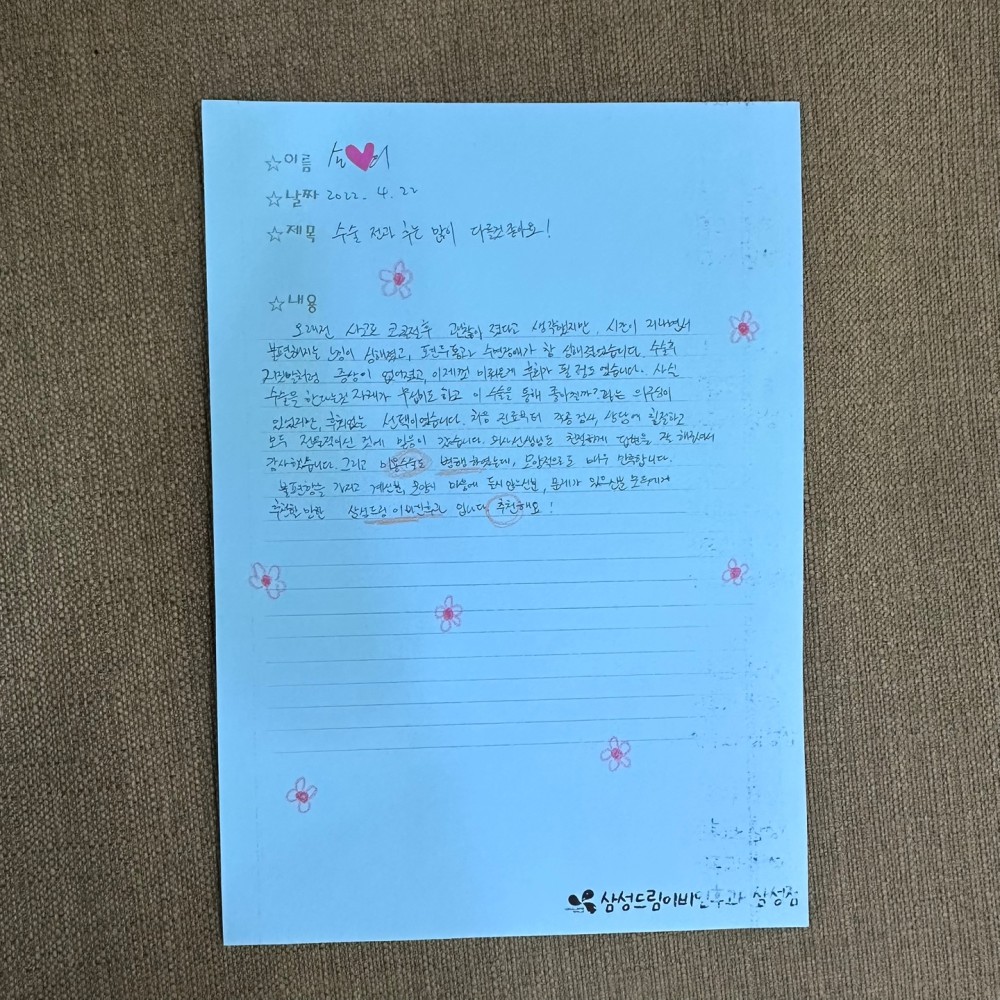 ☆이름 손♥리
☆날짜 2022. 4. 22
☆제목 수술 전과 후는 많이 다른것 좋아요!
☆내용
오래전 사고로 코골절후 괜찮이 졌다고 생각했지만, 시간이 지나면서
불편해지는 느낌이 심해졌고, 편두통과 수면장애가 참 심해졌었습니다. 수술후
거짓말처럼 증상이 없어졌고, 이제껏 미뤄온게 후회가 될 정도 였습니다. 사실
수술을 한다는것 자체가 무섭기도 하고 이 수술을 통해 좋아질까?라는 의구심이
있었지만, 후회없는 선택이였습니다. 처음 진료부터 각종 검사, 상담에 친절하고
모두 전문적이신 것에 믿음이 갔습니다. 의사선생님도 친절하게 답변을 잘 해주셔서
감사했습니다. 그리고 미용수술도 병행하였는데, 모양적으로도 매우 만족합니다.
불편함을 가지고 계신분, 모양이 마음에 들지 않으신분, 문제가 있으신분 모두에게
추천할 만한 삼성드림 이비인후과 입니다. 추천해요!
삼성드림이비인후과 삼성점